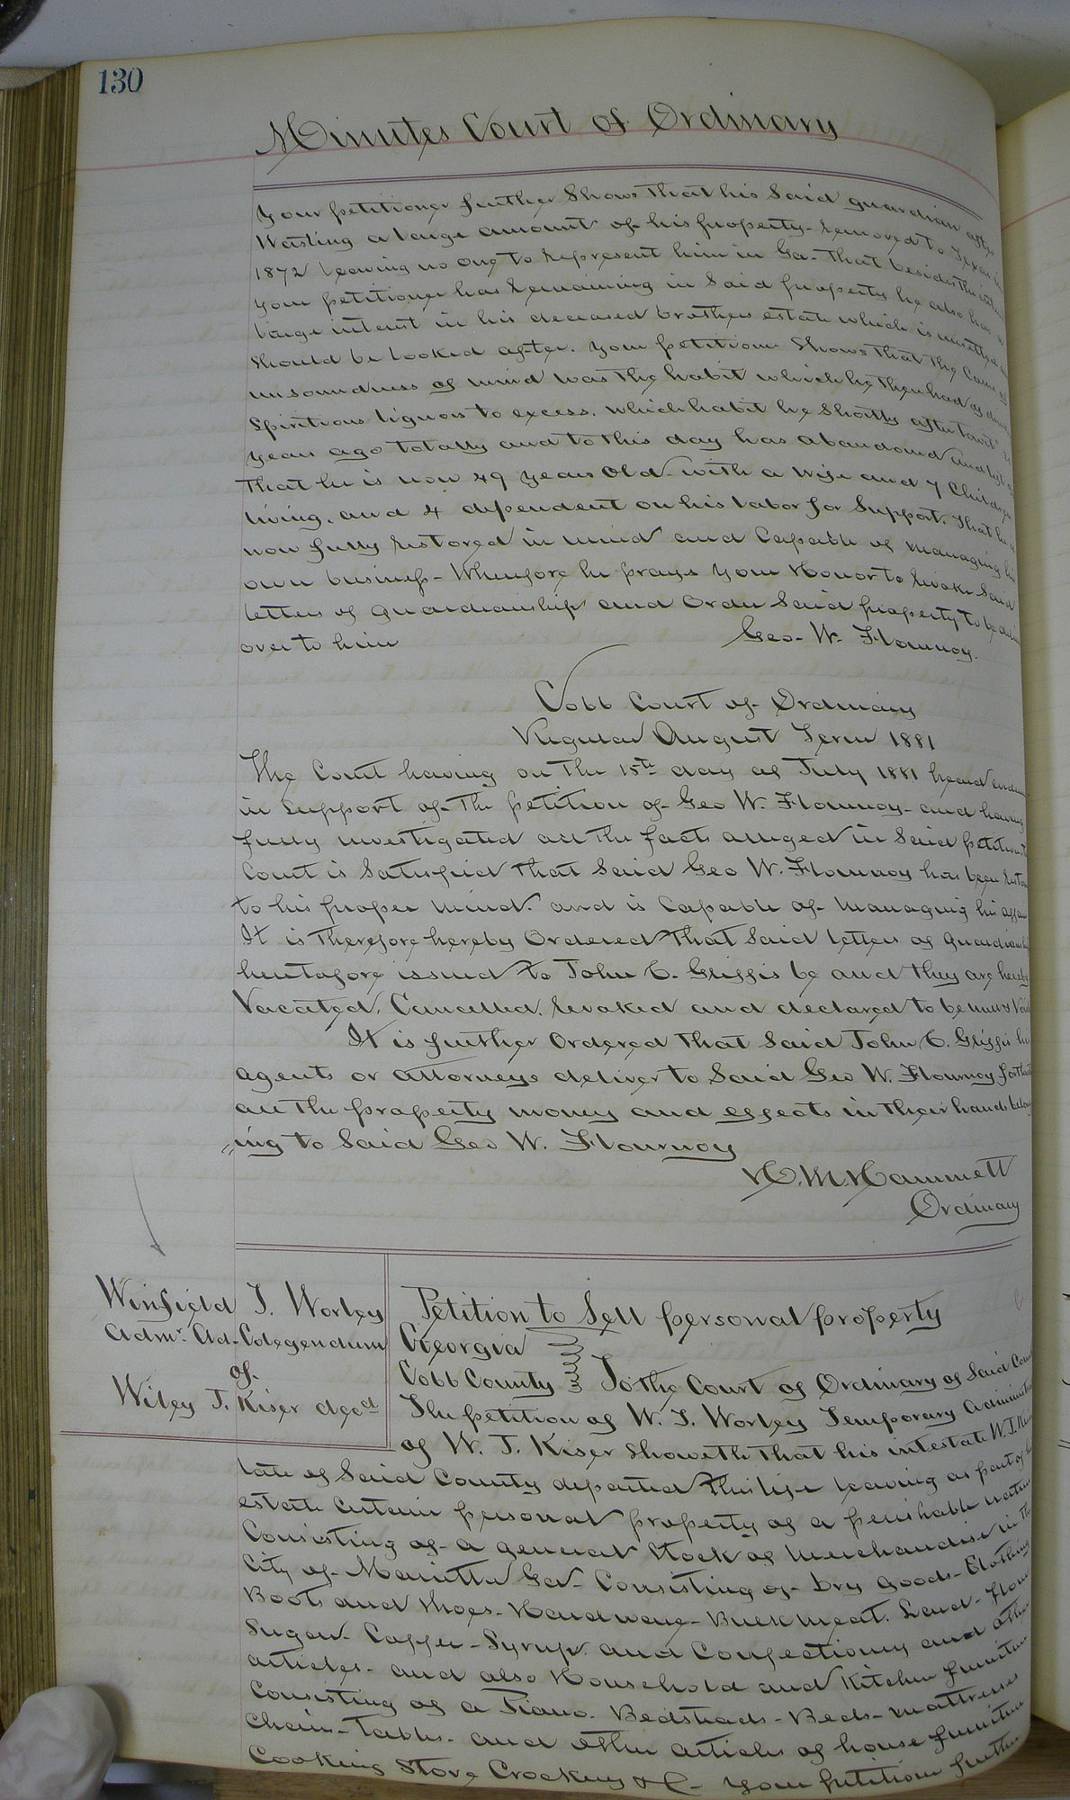 130
Minutes Court of Ordinary
Your petitioner further Shows that his Said guardian after
Wasting a large amount of his property - removed to Texas in
1872 leaving no one to represent him in Ga - that besides the
Your petitioner has remaining in Said property he also has a
large interest in his deceased brothers estate which is
Should be looked after. Your petitioner Shows that the Cause of
unsoundness of mind was the habit which he then had of
Spiritous liquors to excess. which habit he Shortly after
years ago totally and to this day has abandoned and
That he is now 49 years old - with a wife and 7 Children
living. and 4 dependent on his labor for Support. That he is
now fully restored in mind and Capable of managing his
own business - Wherefore he prays your Honor to revoke Said
letters of guardianship and Order Said property to be
over to him Geo. W. Flournoy.
Cobb Court of Ordinary
Regular August Term 1881
The Court having on the 15th day of July 1881 heard
in Support of the petition of Geo W. Flournoy - and having
fully investigated all the facts alleged in Said petition the
Court is Satisfied that Said Geo W. Flournoy has been
to his proper mind. and is Capable of managing his
It is Therefore hereby Ordered that Said letters of
heretofore issued to John C. Griffis be and they are hereby
Vacated, Cancelled, revoked and declared to be null & Void
It is further Ordered that Said John C. Griffis his
agents or attorneys deliver to Said Geo W. Flournoy
all the property money and effects in their hands
"ing to Said Geo W. Flournoy
H. M. Hammett
Ordinary
Winfield T. Worley
Admr. Ad-Colegendum
of
Wiley J. Kiser decd
Petition to Sell personal property
Georgia
Cobb County To the Court of Ordinary of Said
The petition of W. T. Worley Temporary
of W. J. Kiser Showeth that his intestate W. J.
late of Said County departed this life leaving as part of
estate Certain personal property of a perishable nature
Consisting of a general Stock of Merchandise in the
City of Marietta Ga - Consisting of - Dry Goods - Clothing
Boots and Shoes - Hardware - Bulk meat. Lard - Flour
Sugar - Coffee - Syrup and Confectionery and other
articles - and also Household and Kitchen furniture
Consisting of a Piano - Bedsteads - Beds - Mattresses
Chairs - Tables - and other articles of house furniture
Cooking Stove Crockery &C - Your petitioner further